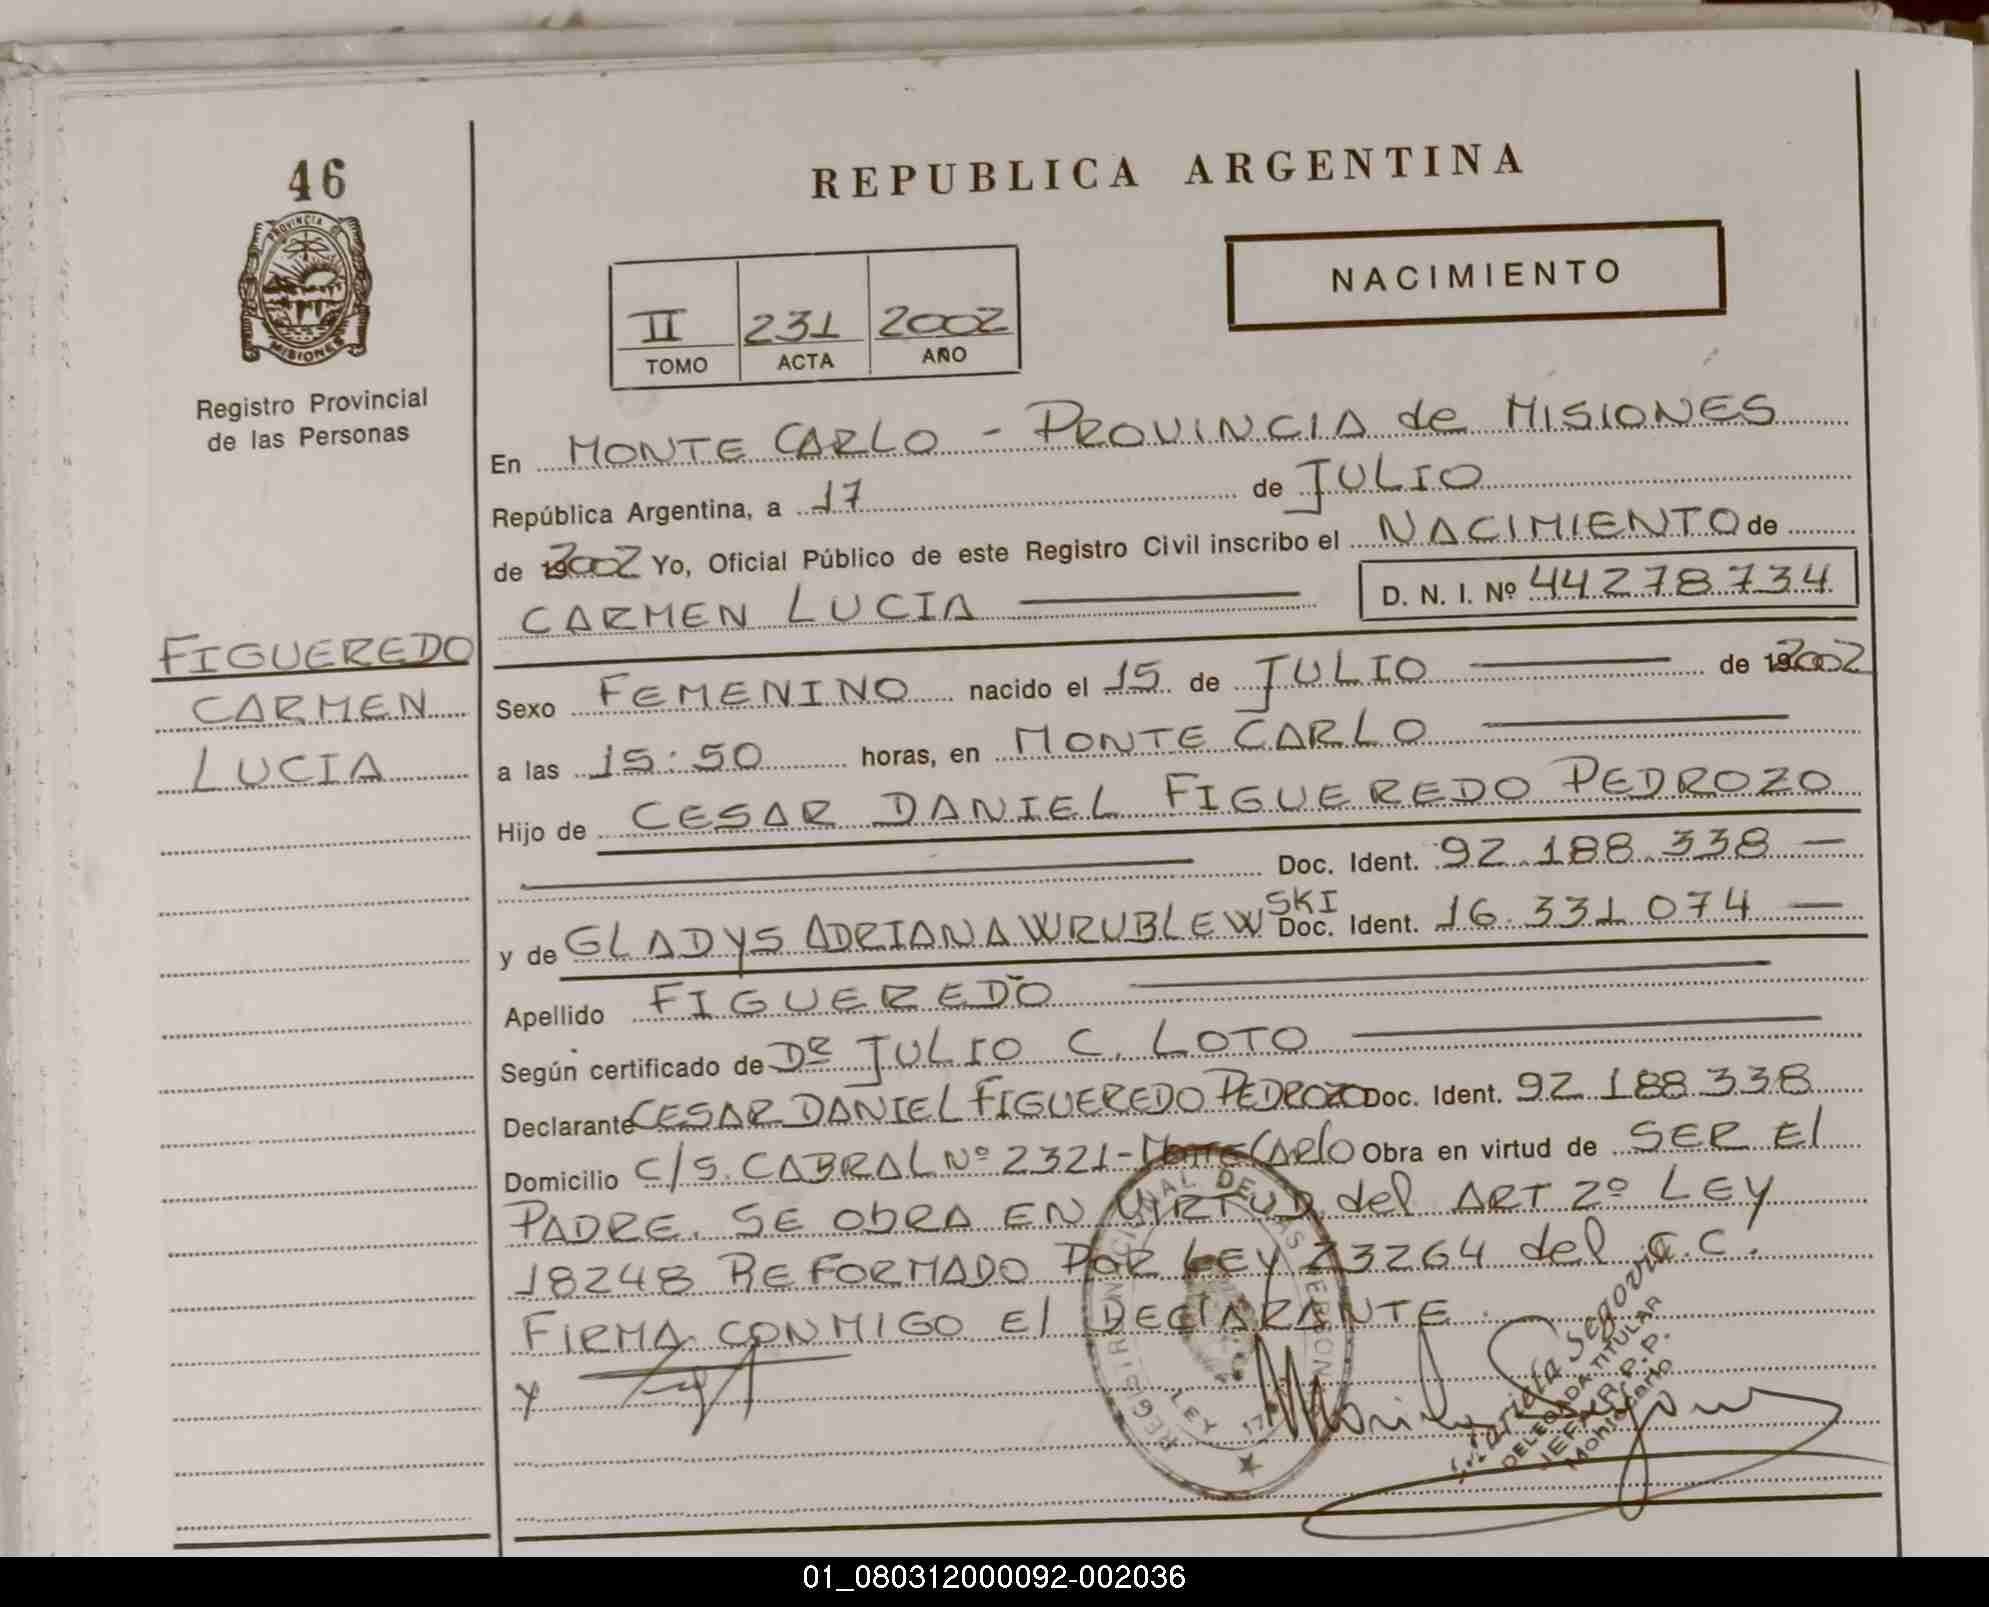 46
PROVINCIA DE
MISIONES
Registro Provincial
de las Personas
FIGUEREDO
CARMEN
LUCIA
REPUBLICA ARGENTINA
NACIMIENTO
II 231 2002
TOMO ACTA AÑO
En MONTE CARLO - PROVINCIA de MISIONES
República Argentina, a 17 de JULIO
de 2002 Yo, Oficial Público de este Registro Civil inscribo el NACIMIENTO de
CARMEN LUCIA D. N. I. Nº 44278734
Sexo FEMENINO nacido el 15 de JULIO de 2002
a las 15:50 horas, en MONTE CARLO
Hijo de CESAR DANIEL FIGUEREDO PEDROZO
Doc. Ident. 92.188.338 —
y de GLADYS ADRIANA WRUBLEWSKI Doc. Ident. 16.331.074 —
Apellido FIGUEREDO
Según certificado de Dr JULIO C. LOTO
Declarante CESAR DANIEL FIGUEREDO PEDROZO Doc. Ident. 92.188.338
Domicilio C/S. CABRAL Nº 2321 - Monte CARlO Obra en virtud de SER El
PADRE. SE ObRA EN VIRTUD del ART 2º LEY
18248 REFORMADO POR LEY 23264 del C.C.
FIRMA CONMIGO El DEClARANTE.
y
REGISTRO PROVINCIAL DE LAS PERSONAS
LEY
María Segovia
DELEGADA TITULAR
JEFA R.P.P.
Montecarlo
01_080312000092-002036